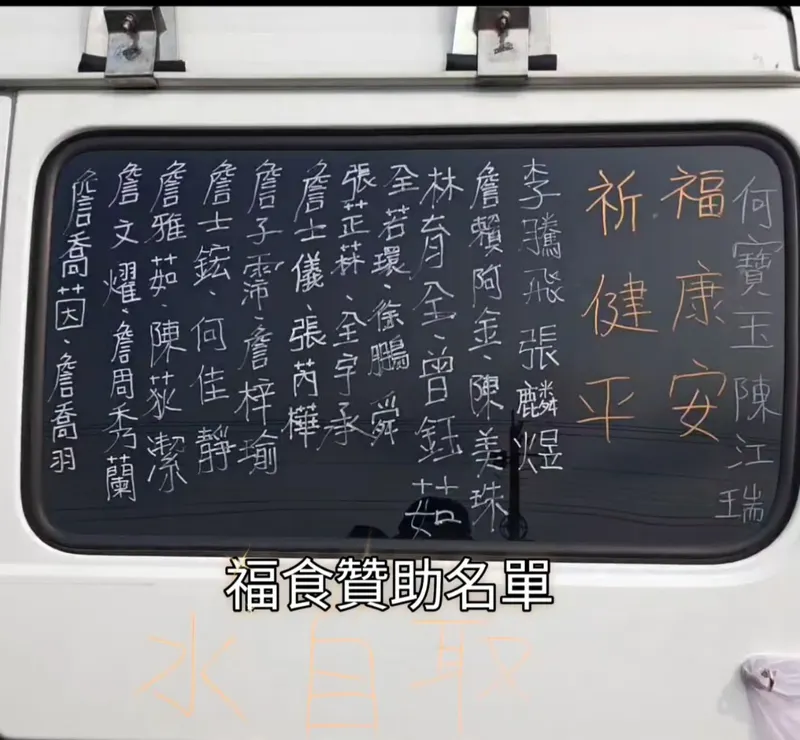 何寶玉 陳江瑞
福康安
祈健平
李騰飛 張麟煜
詹賴阿金、陳美珠
林育全、曾鈺茹
全若環、徐鵬舜
張芷菻、全宇承
詹士儀、張芮樺
詹子霈、詹梓瑜
詹士鋐、何佳靜
詹雅茹、陳荻潔
詹文燿、詹周秀蘭
詹喬茵、詹喬羽
福食贊助名單
水自取